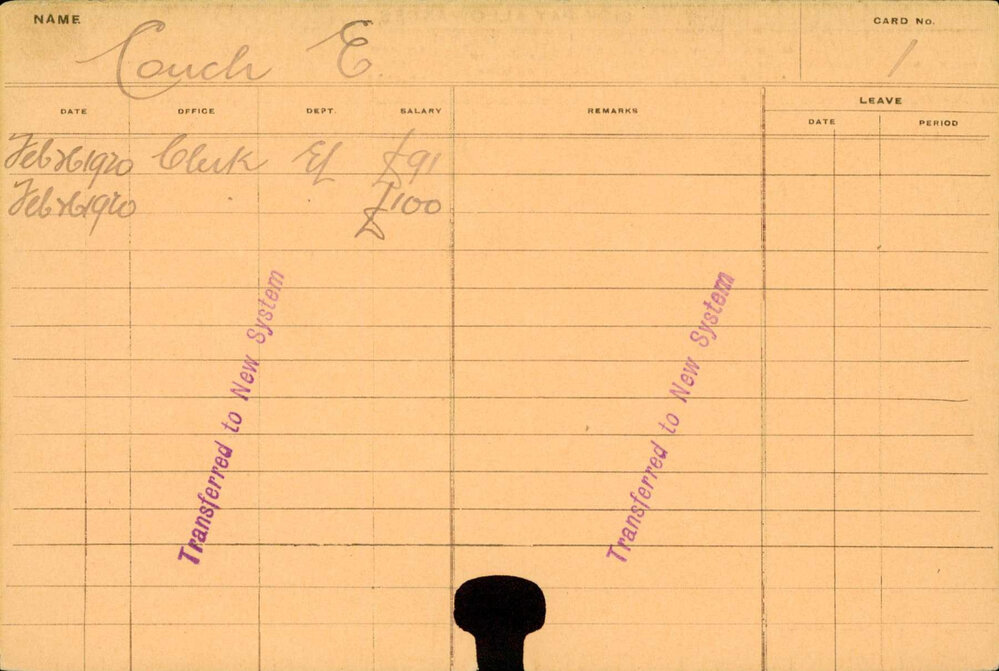 NAME
CARD No.
Couch E.
1
LEAVE
DATE OFFICE DEPT. SALARY REMARKS DATE PERIOD
Feb 26 1920 Clerk Ef £91
Feb 26 1920 £100
Transferred to New System
Transferred to New System